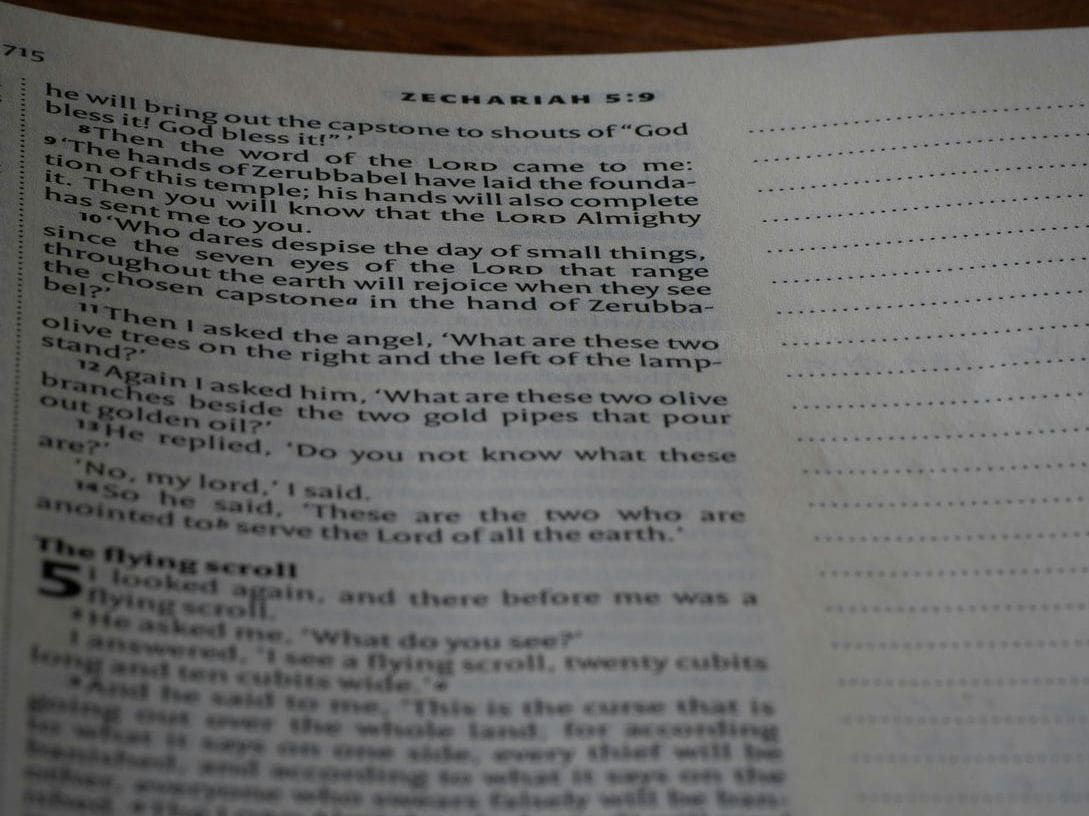 715
ZECHARIAH 5:9
he will bring out the capstone to shouts of “God
bless it! God bless it!” ’
8 Then the word of the LORD came to me:
9 ‘The hands of Zerubbabel have laid the founda-
tion of this temple; his hands will also complete
it. Then you will know that the LORD Almighty
has sent me to you.
10 ‘Who dares despise the day of small things,
since the seven eyes of the LORD that range
throughout the earth will rejoice when they see
the chosen capstone a in the hand of Zerubba-
bel?’
11 Then I asked the angel, ‘What are these two
olive trees on the right and the left of the lamp-
stand?’
12 Again I asked him, ‘What are these two olive
branches beside the two gold pipes that pour
out golden oil?’
13 He replied, ‘Do you not know what these
are?’
‘No, my lord,’ I said.
14 So he said, ‘These are the two who are
anointed to b serve the Lord of all the earth.’
The flying scroll
5 I looked again, and there before me was a
flying scroll.
2 He asked me, ‘What do you see?’
I answered, ‘I see a flying scroll, twenty cubits
long and ten cubits wide.’ c
3 And he said to me, ‘This is the curse that is
going out over the whole land; for according
to what it says on one side, every thief will be
banished, and according to what it says on the
other, everyone who swears falsely will be ban-